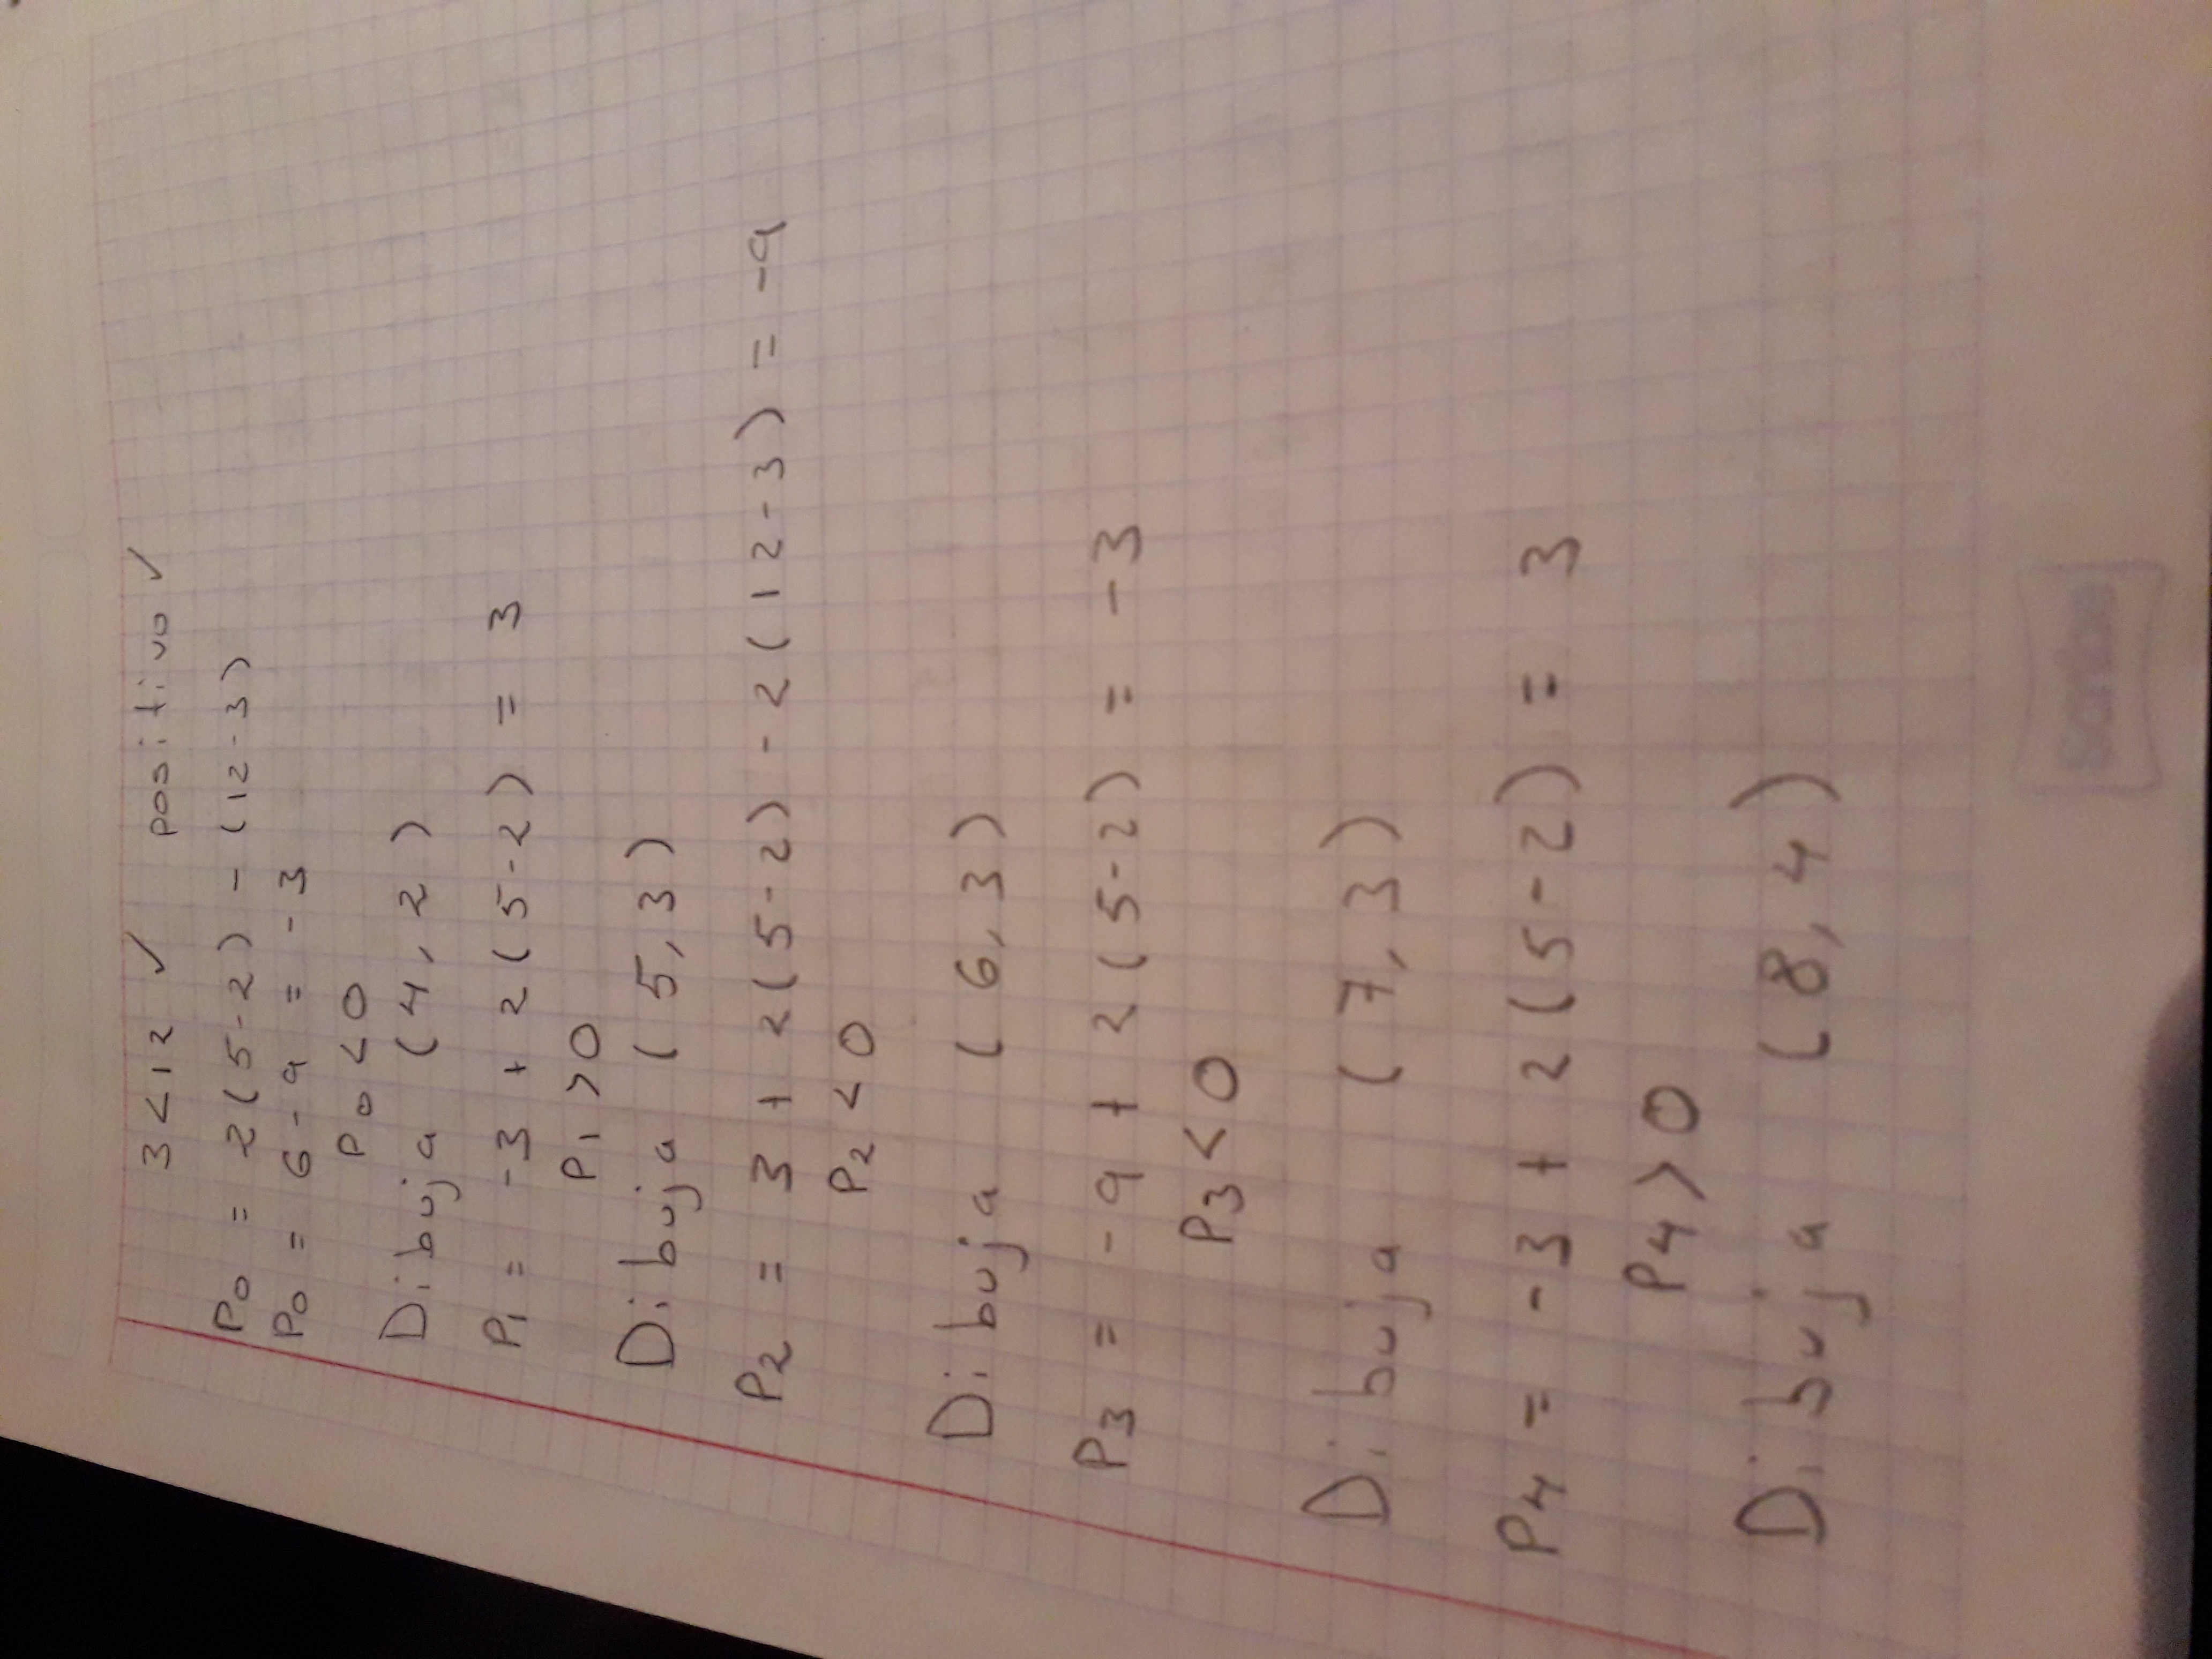 3 < 12 ✓ positivo ✓
P0 = 2(5-2) - (12-3)
P0 = 6 - 9 = -3
P0 < 0
Dibuja (4, 2)
P1 = -3 + 2(5-2) = 3
P1 > 0
Dibuja (5, 3)
P2 = 3 + 2(5-2) - 2(12-3) = -9
P2 < 0
Dibuja (6, 3)
P3 = -9 + 2(5-2) = -3
P3 < 0
Dibuja (7, 3)
P4 = -3 + 2(5-2) = 3
P4 > 0
Dibuja (8, 4)
Scribe